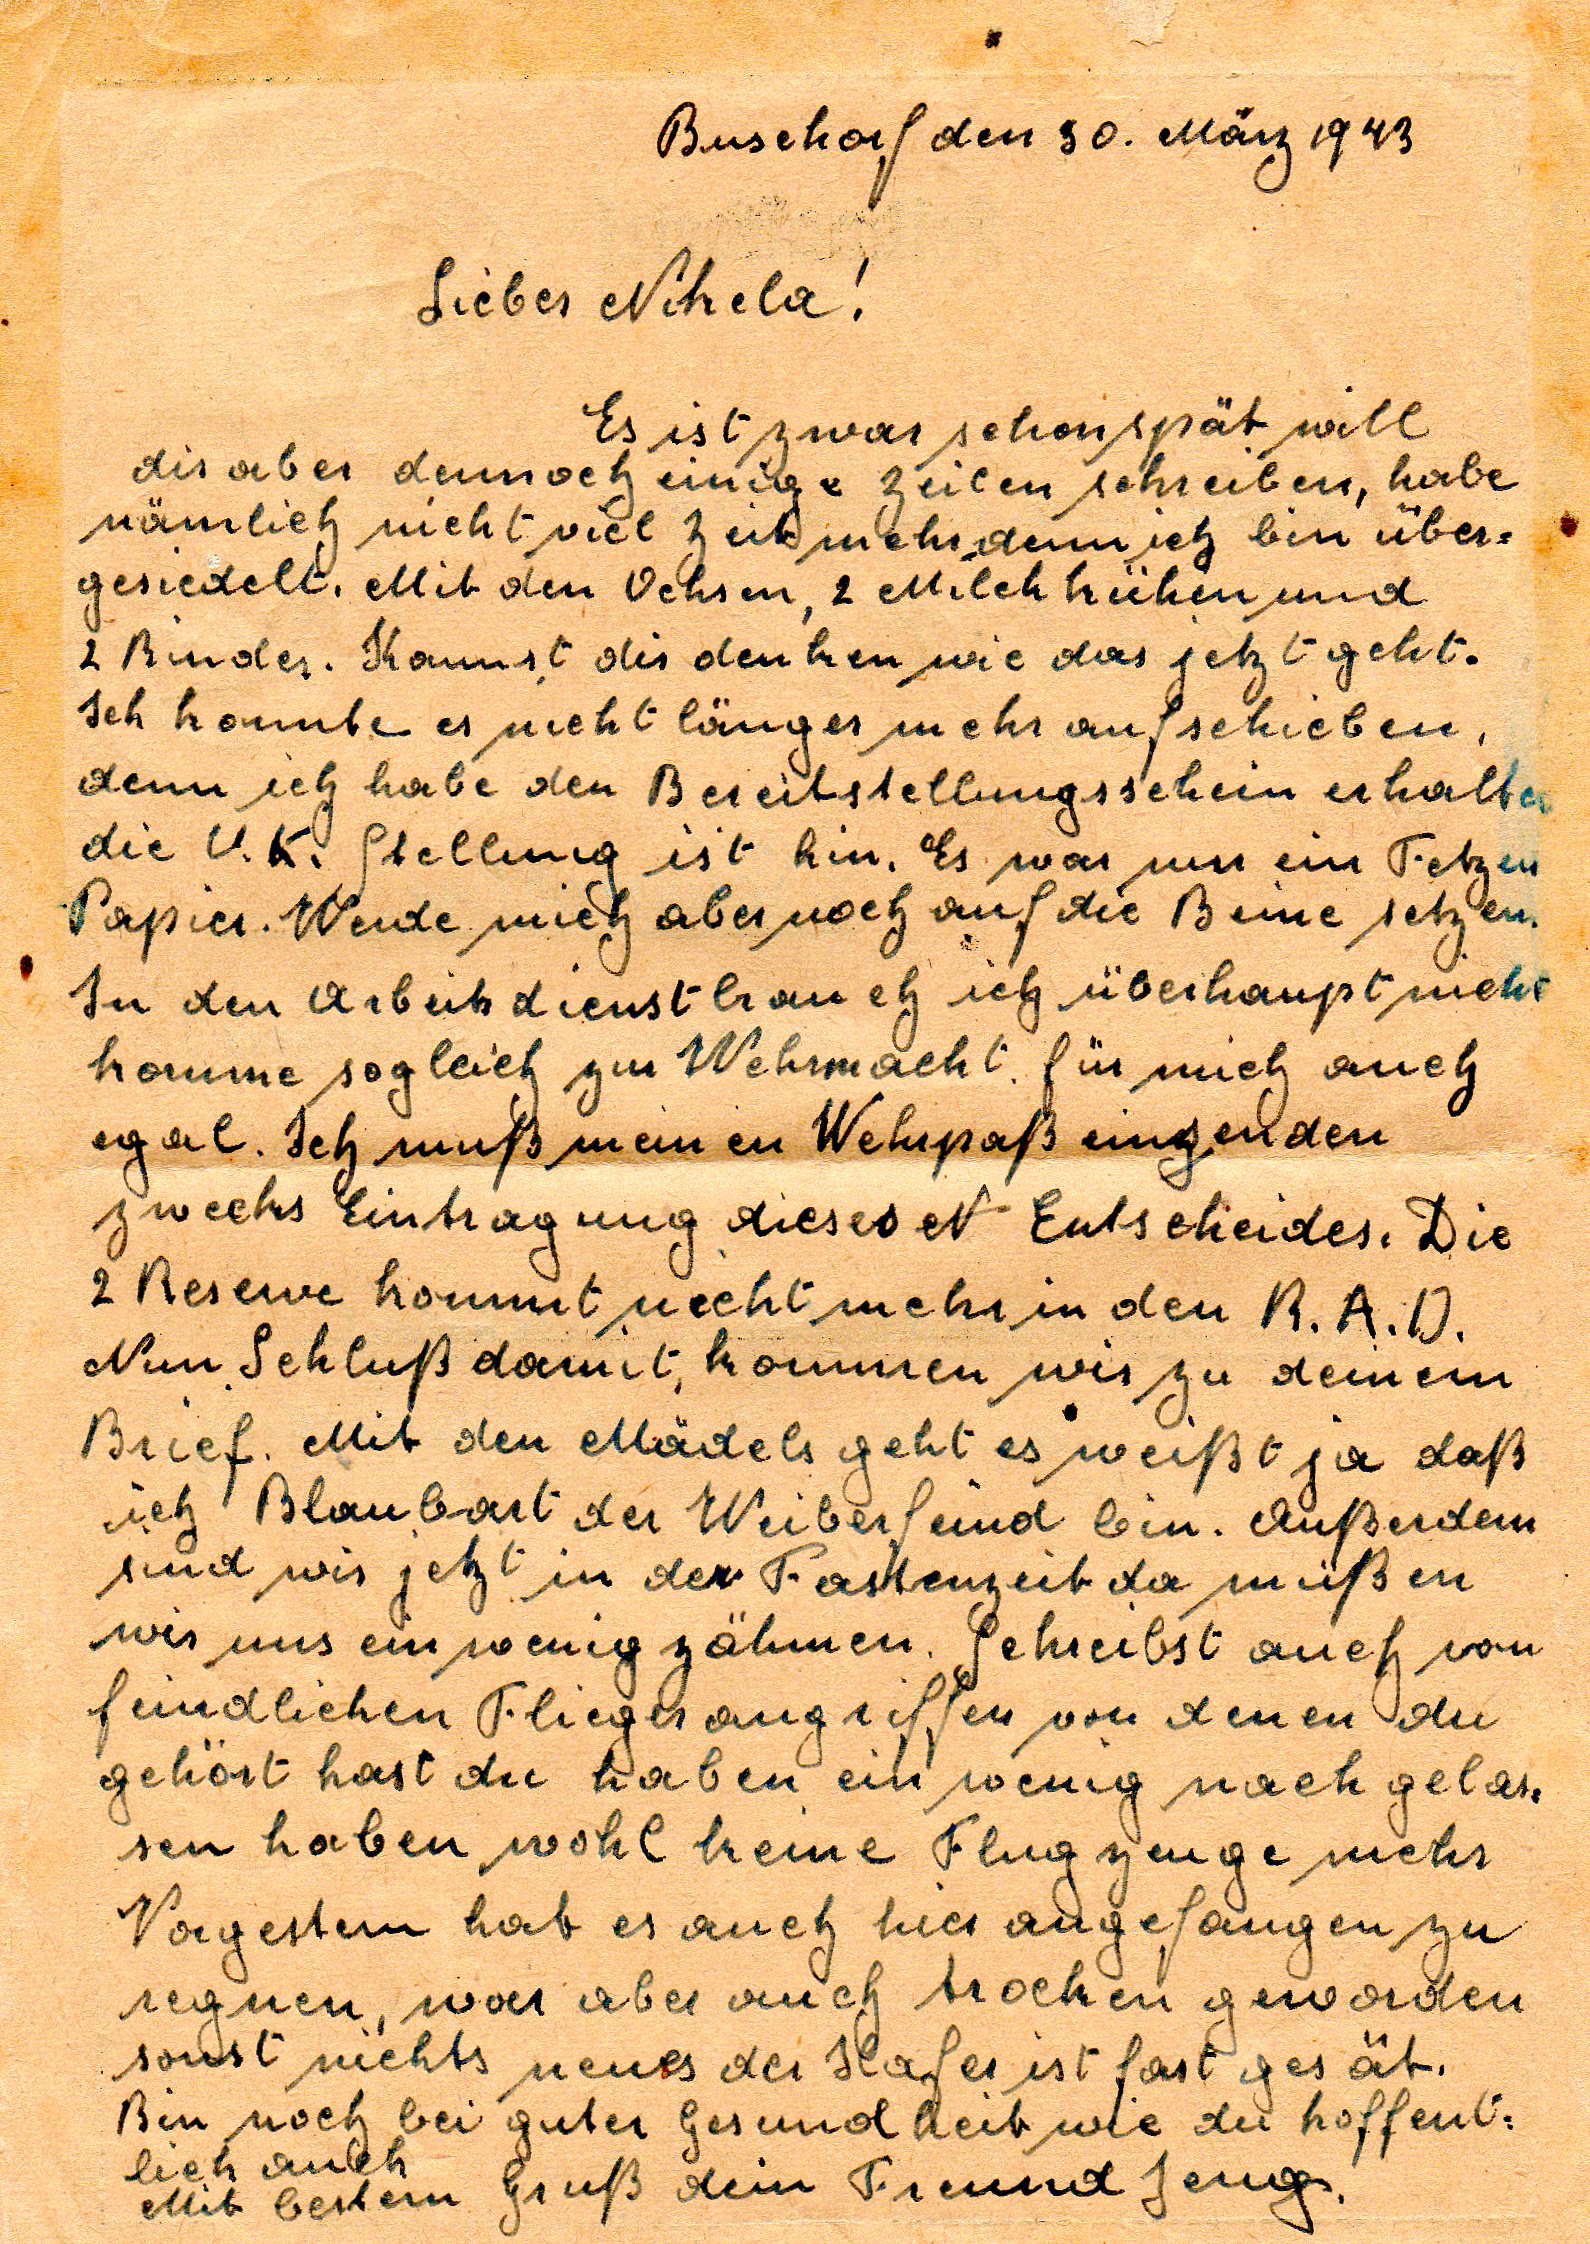 Buschorf den 30. März 1943
Lieber Nikela!
Es ist zwar schon spät will
dir aber dennoch einige Zeilen schreiben, habe
nämlich nicht viel Zeit mehr denn ich bin über=
gesiedelt. Mit den Ochsen, 2 Milchkühen und
2 Rinder. Kannst dir denken wie das jetzt geht.
Ich konnte es nicht länger mehr aufschieben,
denn ich habe den Bereitstellungsschein erhalten
die U.K. Stellung ist hin. Es war nur ein Fetzen
Papier. Werde mich aber noch auf die Beine setzen.
In den Arbeitsdienst brauch ich überhaupt nicht
komme sogleich zur Wehrmacht. für mich auch
egal. Ich muß meinen Wehrpaß einsenden
zwecks Eintragung dieses N Entscheides. Die
2 Reserve kommt nicht mehr in den R.A.D.
Nun Schluß damit, kommen wir zu deinem
Brief. Mit den Mädels geht es weißt ja daß
ich Blaubart der Weiberfeind bin. Außerdem
sind wir jetzt in der Fastenzeit da müßen
wir uns ein wenig zähmen. Schreibst auch von
feindlichen Fliegerangriffen von denen du
gehört hast du haben ein wenig nach gelas=
sen haben wohl keine Flugzeuge mehr
Vorgestern hat es auch hier angefangen zu
regnen, war aber auch trocken geworden
sonst nichts neues der Hafer ist fast gesät.
Bin noch bei guter Gesundheit wie du hoffent=
lich auch
Mit bestem Gruß dein Freund Jeng.